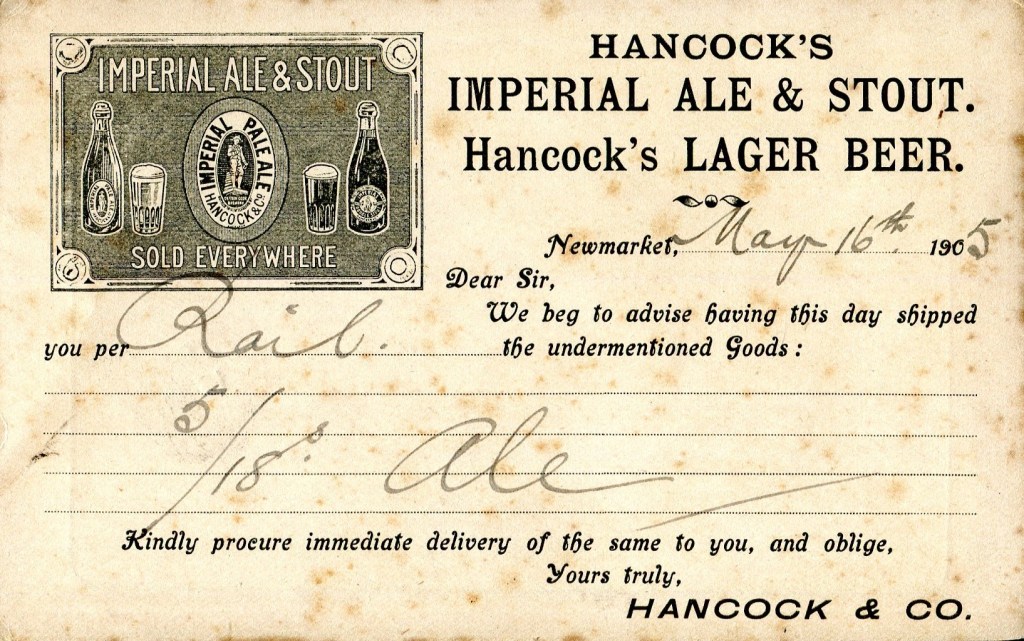 IMPERIAL ALE & STOUT
IMPERIAL PALE ALE
HANCOCK & Co
SOLD EVERYWHERE
HANCOCK'S
IMPERIAL ALE & STOUT.
Hancock's LAGER BEER.
Newmarket, May 16th 1905
Dear Sir,
We beg to advise having this day shipped
you per Rail. the undermentioned Goods:
5/18s Ale
Kindly procure immediate delivery of the same to you, and oblige,
Yours truly,
HANCOCK & CO.